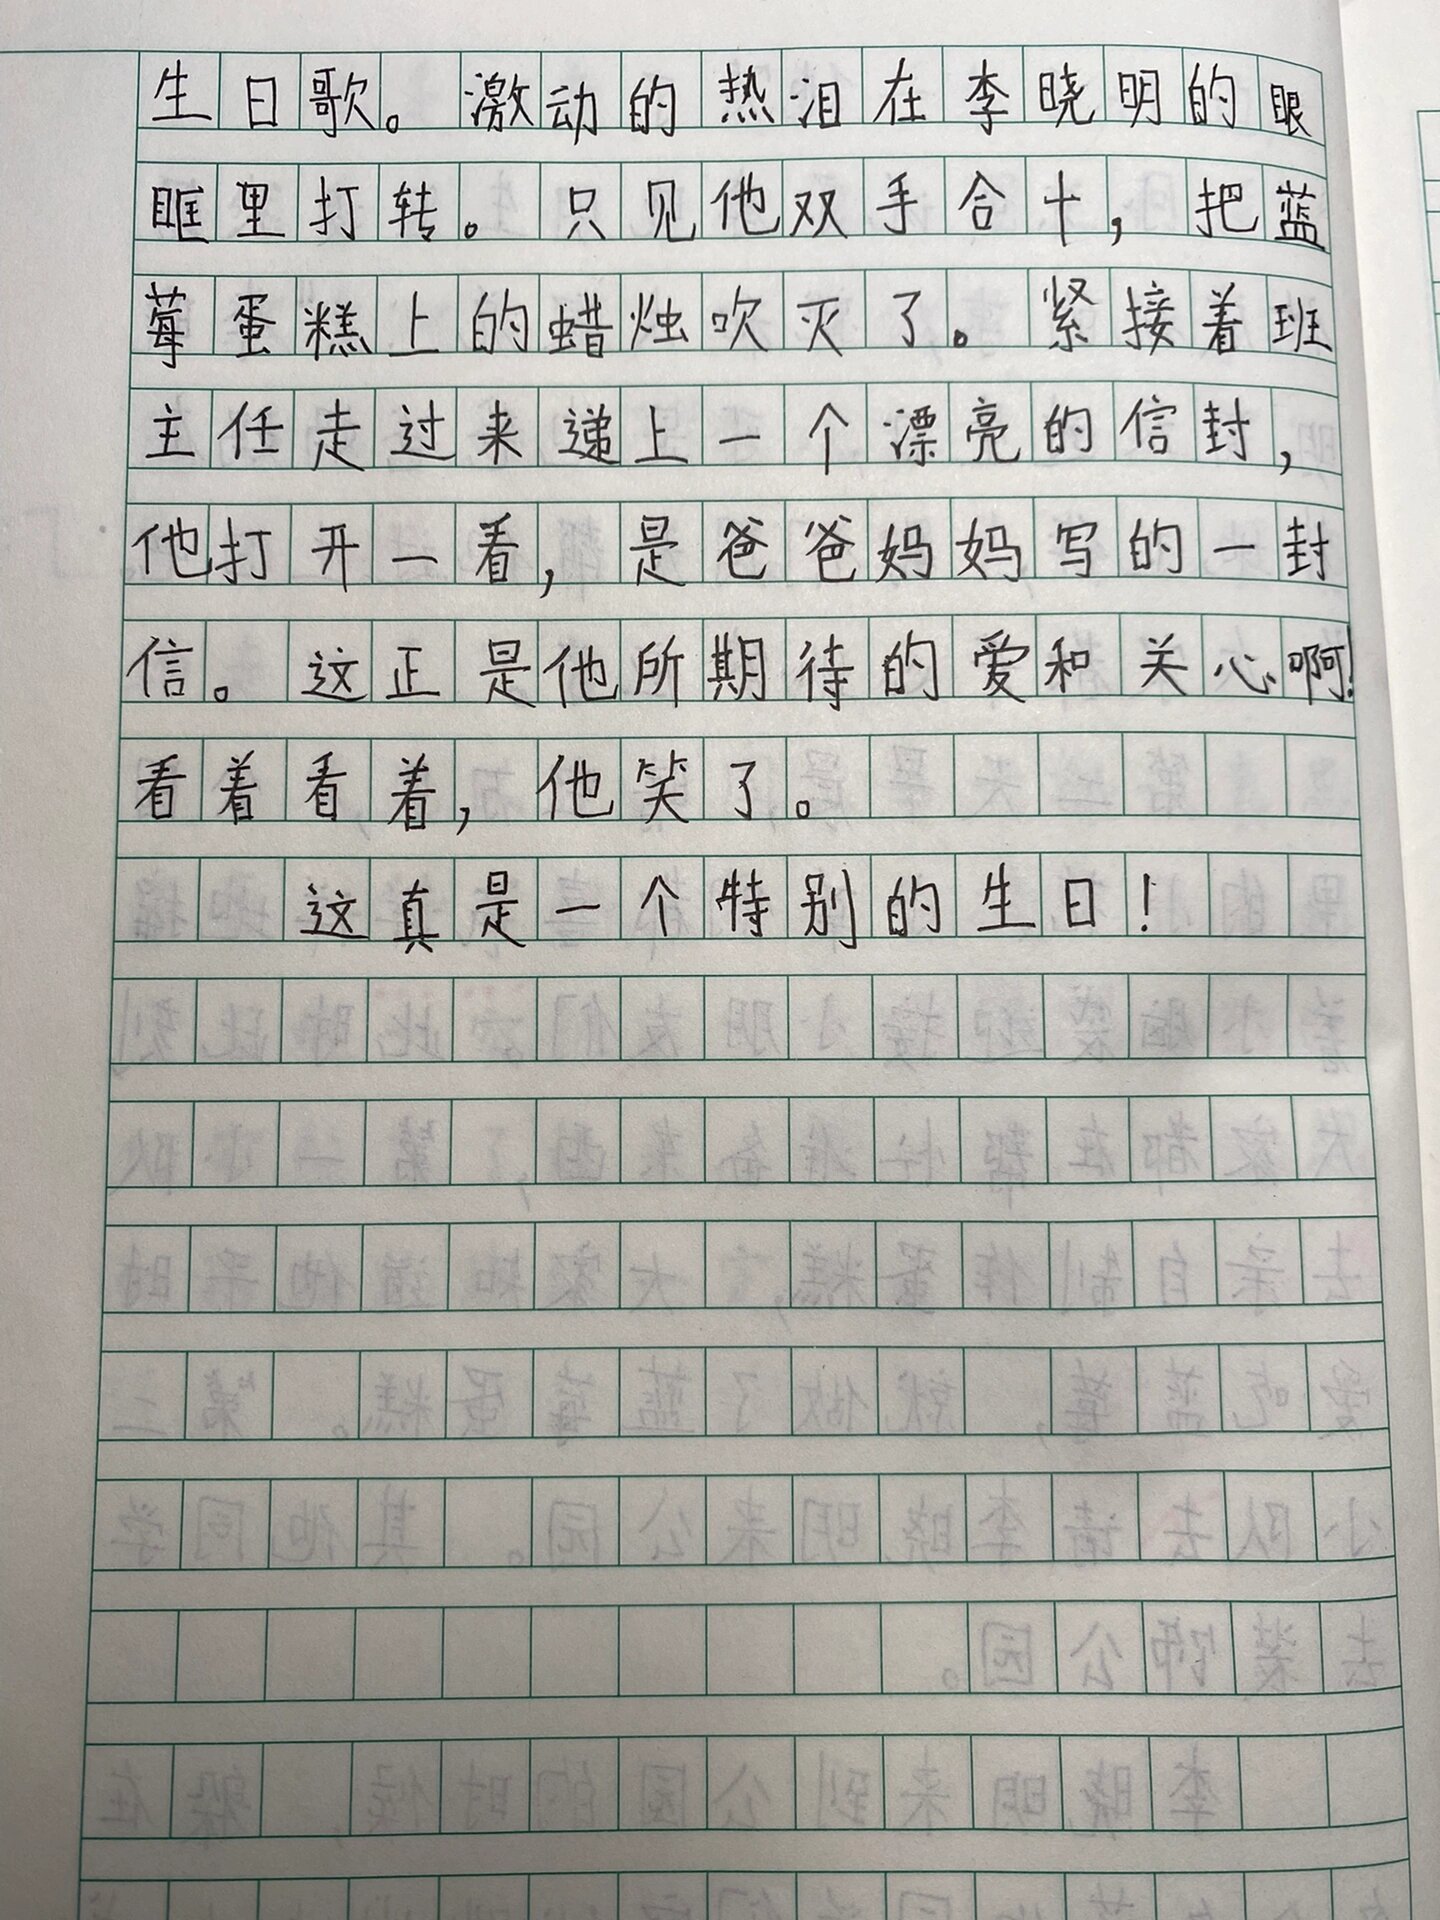 生日歌。激动的热泪在李晓明的眼
眶里打转。只见他双手合十，把蓝
莓蛋糕上的蜡烛吹灭了。紧接着班
主任走过来递上一个漂亮的信封，
他打开一看，是爸爸妈妈写的一封
信。这正是他所期待的爱和关心啊！
看着看着，他笑了。
这真是一个特别的生日！